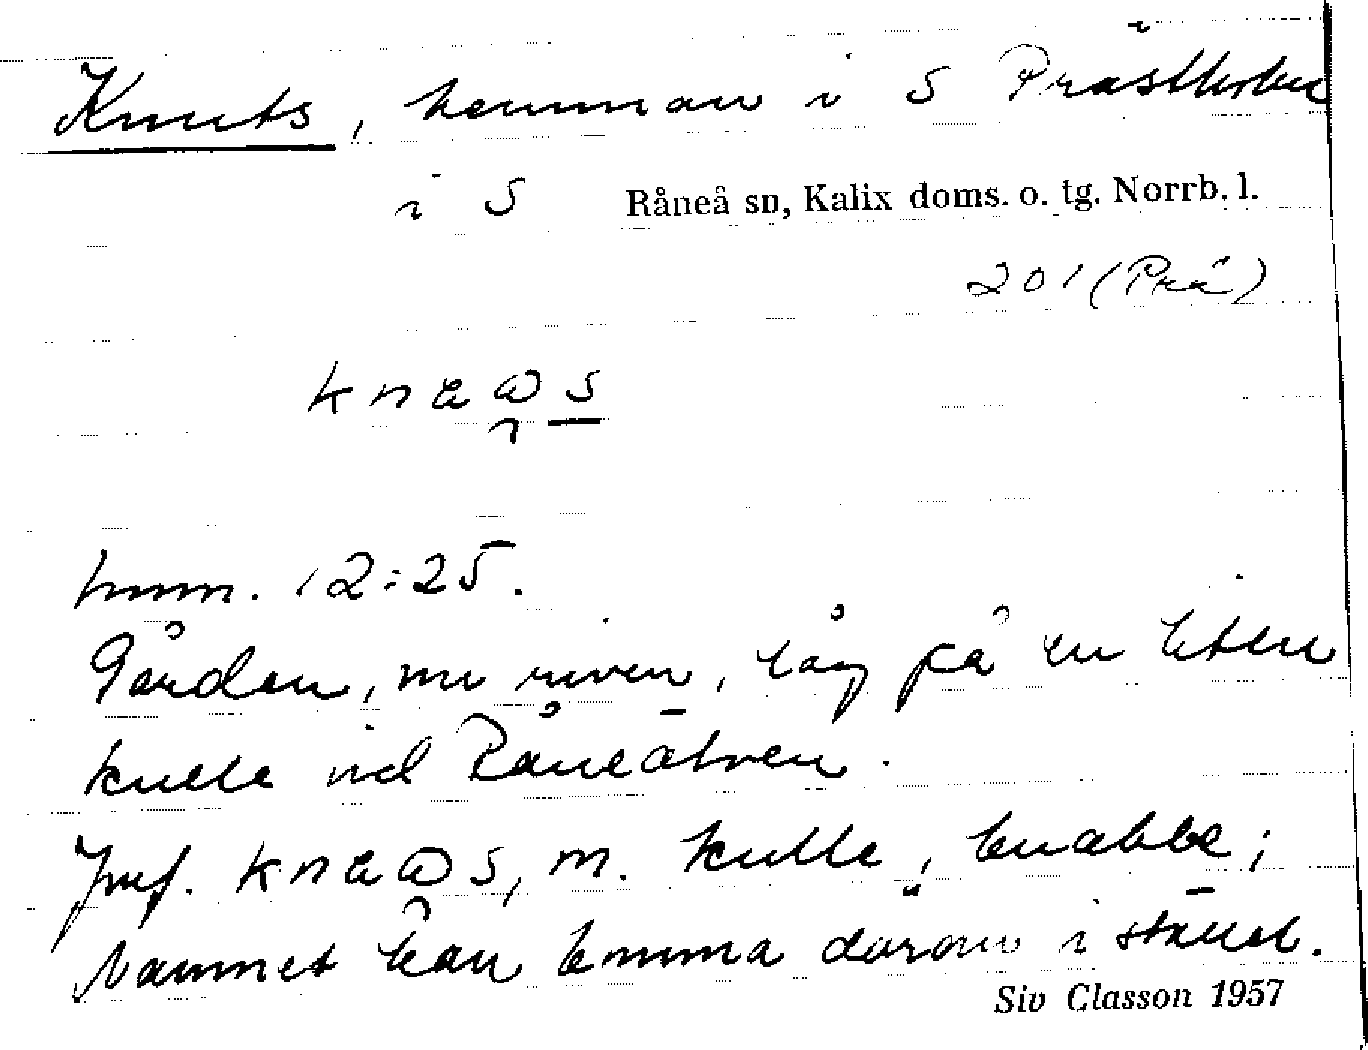 Knuts, hemman i S Prästholm
i S Råneå sn, Kalix doms. o. tg. Norrb. l.
201 (Prä)
hmn. 12:25.
Gården, nu riven, låg på en liten
kulle vid Råneälven.
Jmf. m. kulle, knabbe;
Namnet kan komma därav i stället.
Siv Classon 1957